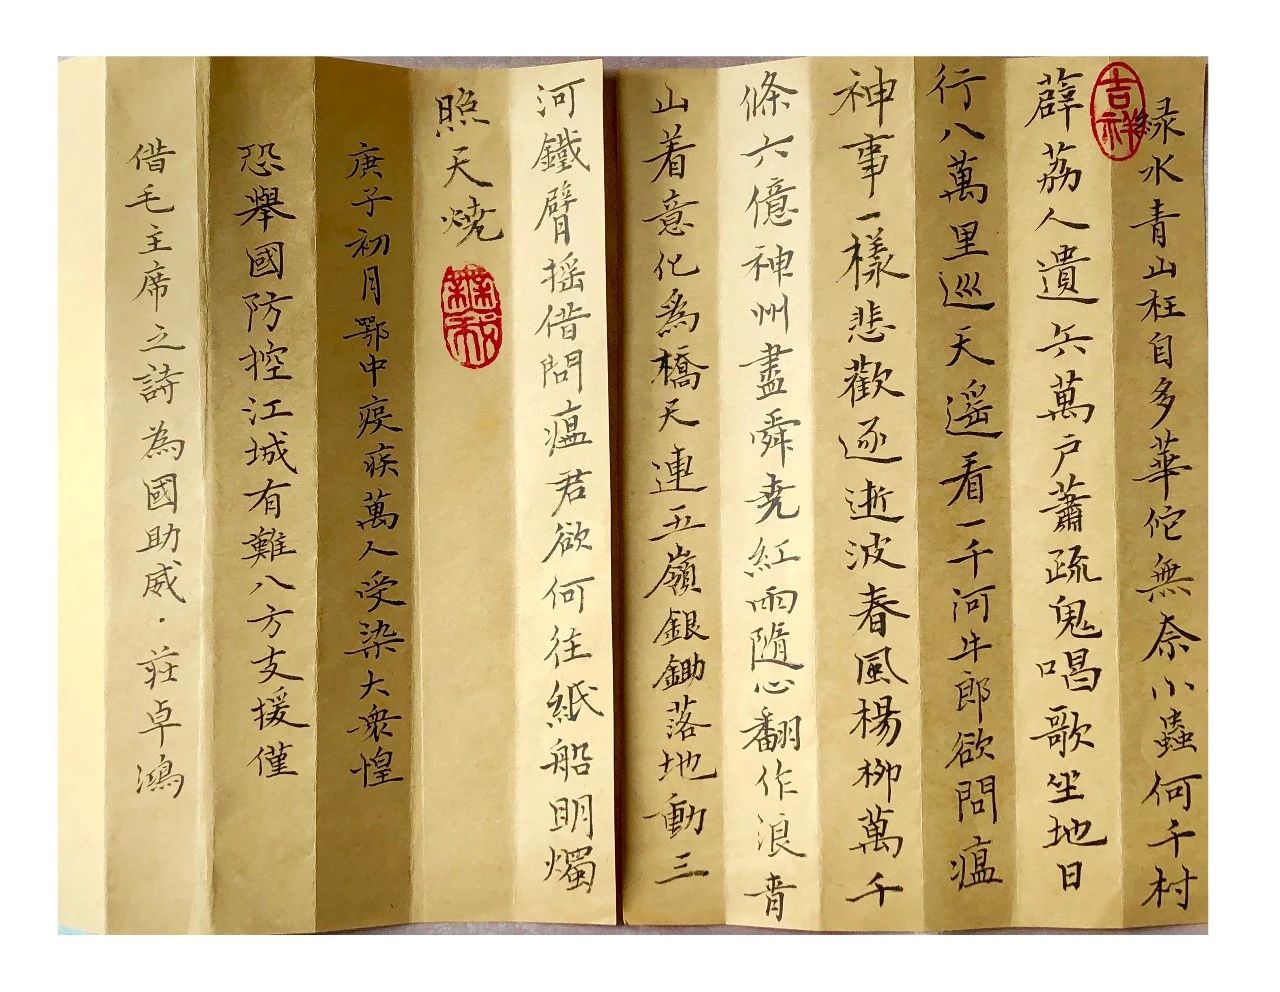 吉祥
緑水青山枉自多華佗無奈小蟲何千村
薜荔人遺矢萬户蕭疏鬼唱歌坐地日
行八萬里巡天遥看一千河牛郎欲問瘟
神事一樣悲歡逐逝波春風楊柳萬千
條六億神州盡舜堯紅雨隨心翻作浪青
山着意化為橋天連五嶺銀鋤落地動三
河鐵臂摇借問瘟君欲何往紙船明燭
照天燒
庚子初月鄂中疫疾萬人受染大衆惶
恐舉國防控江城有難八方支援僅
借毛主席之詩為國助威·莊卓鴻